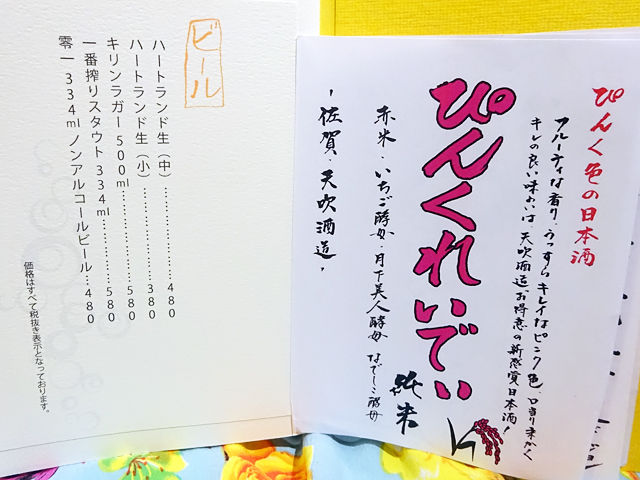 ビール
ハートランド生（中）………………480
ハートランド生（小）………………380
キリンラガー500ml………………580
一番搾りスタウト334ml…………580
零一334mlノンアルコールビール…480
価格はすべて税抜き表示となっております。
ぴんく色の日本酒
フルーティな香り、うっすらキレイなピンク色 口当り柔かく
キレの良い味わいは、天吹酒造お得意の新感覚日本酒！
ぴんくれいでぃ
純米
赤米・いちご酵母・月下美人酵母 なでしこ酵母
-佐賀・天吹酒造-